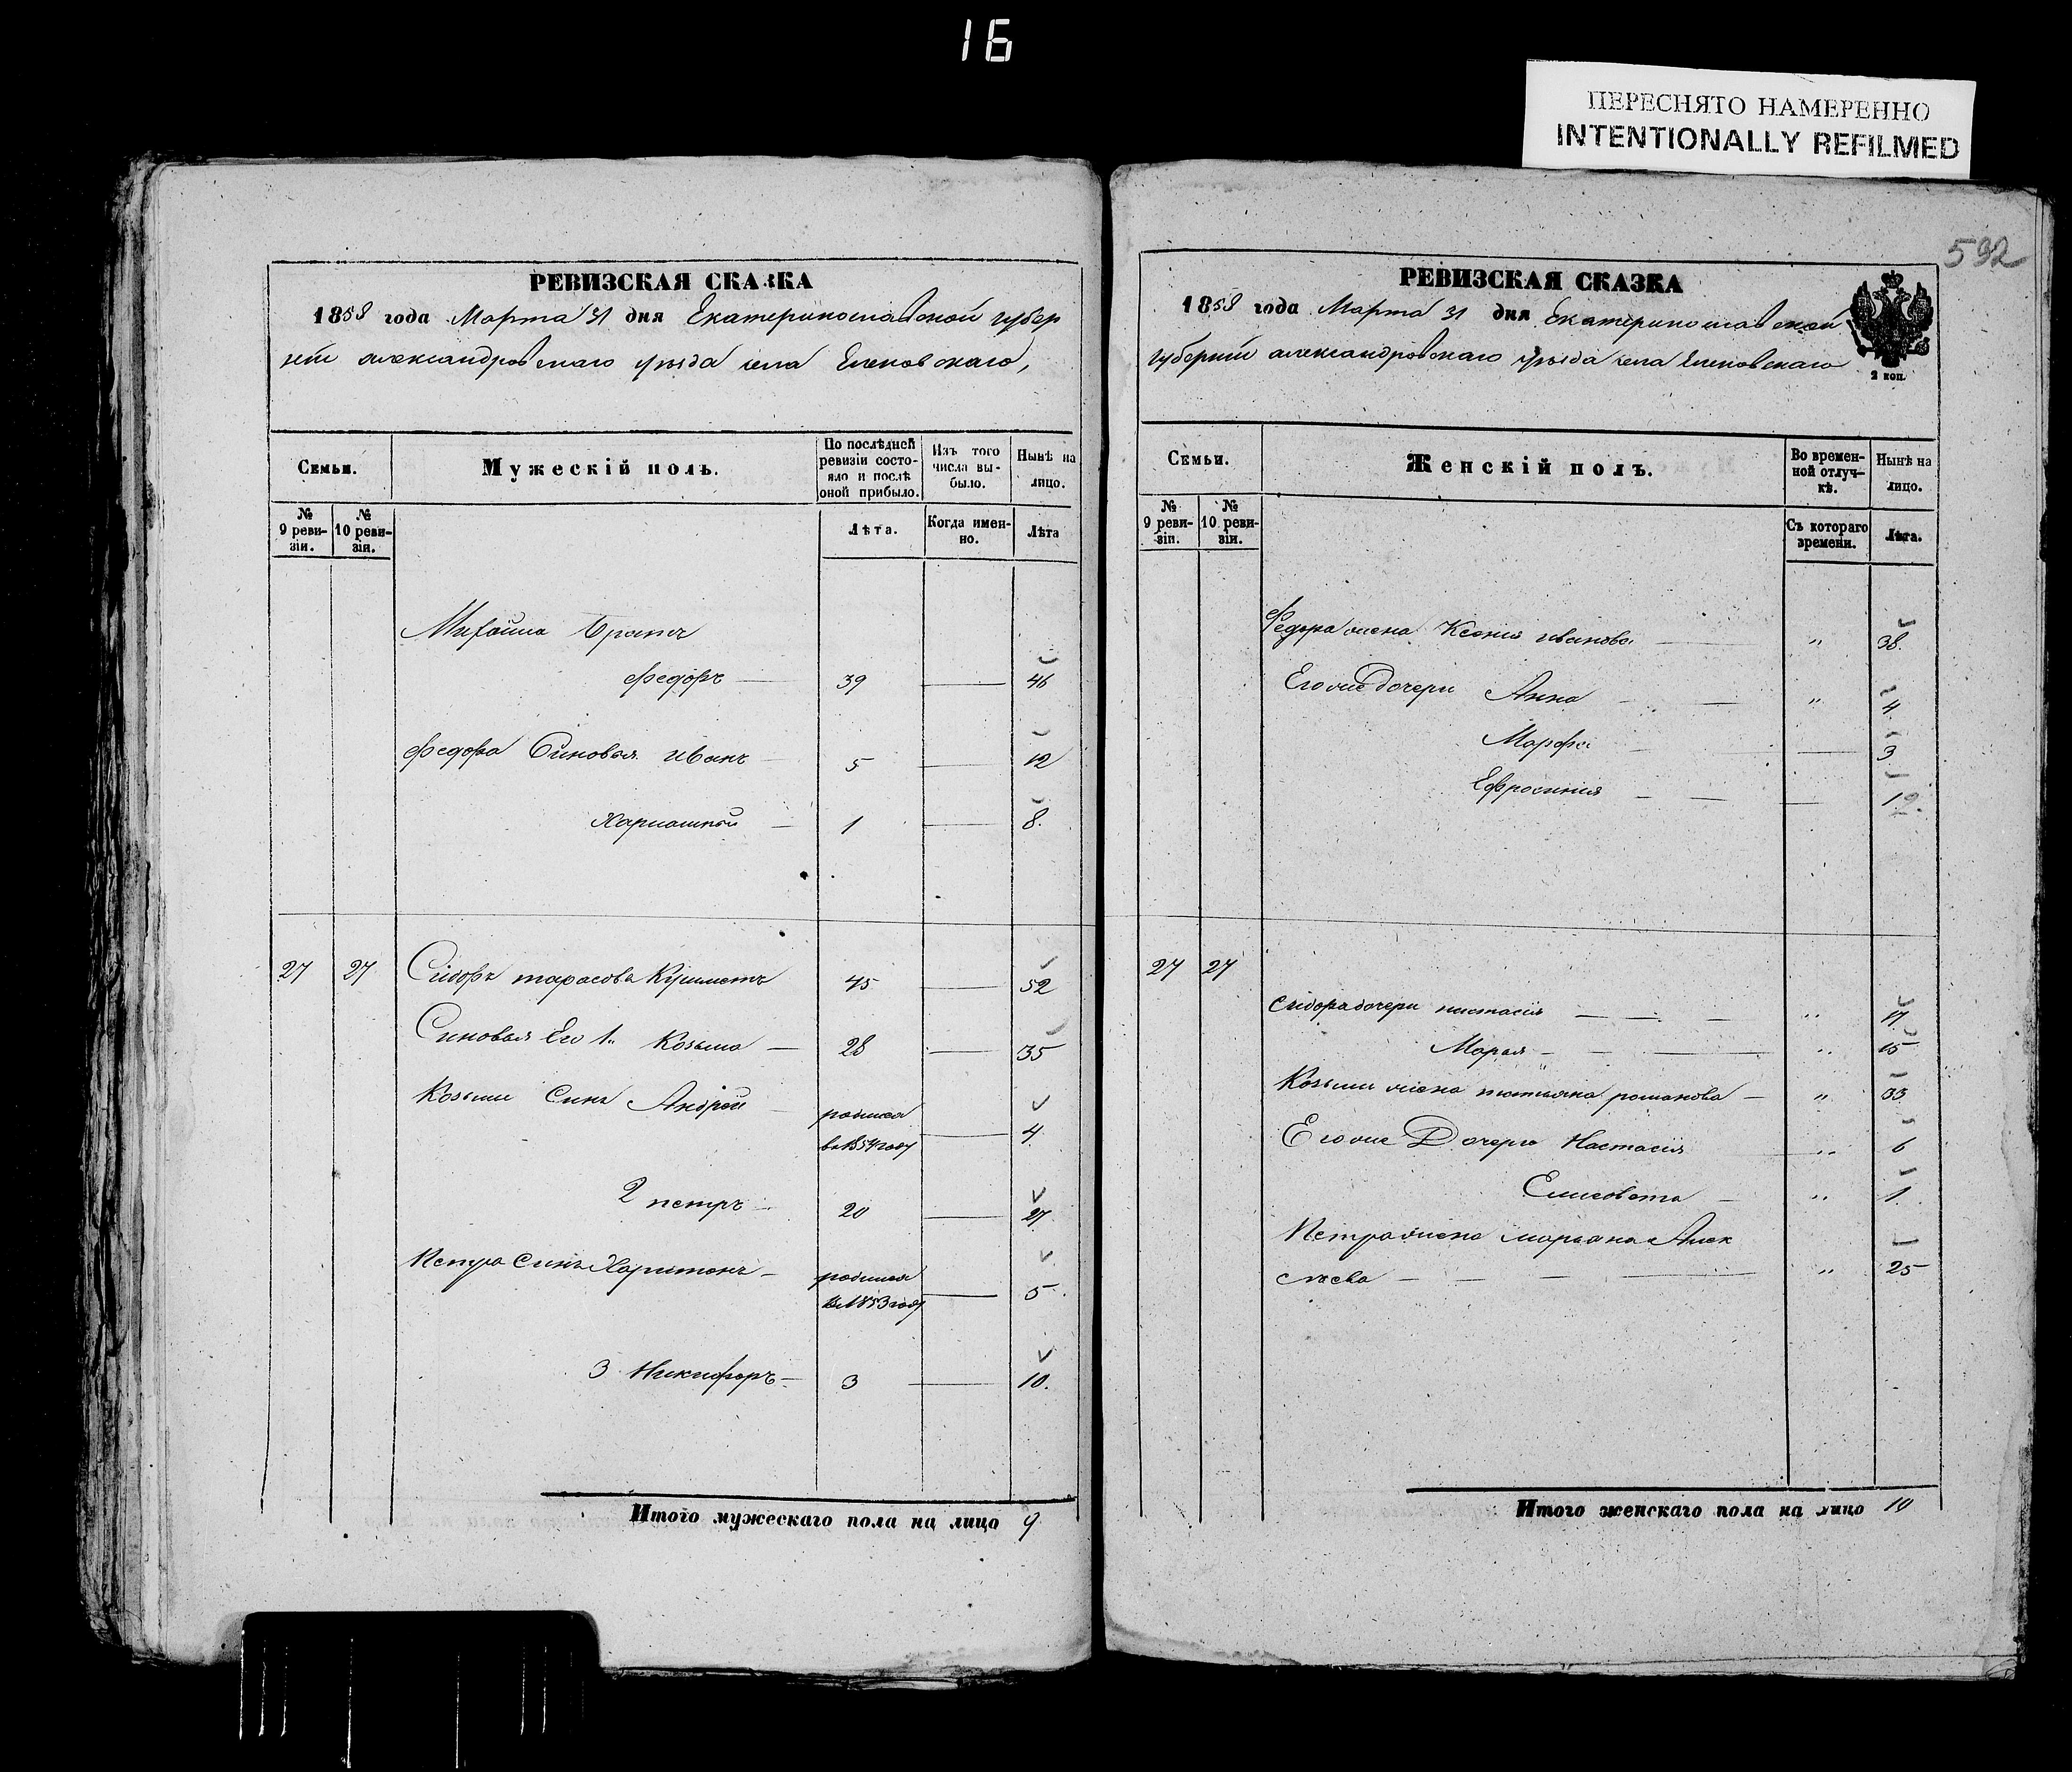 16
ПЕРЕСНЯТО НАМЕРЕННО
INTENTIONALLY REFILMED
592
РЕВИЗСКАЯ СКАЗКА
1858 года Марта 31 дня Екатеринославской губер
нии александровскаго уѣзда села Еленовскаго,
Семьи.
Мужескій полъ.
По послѣдней ревизіи состояло и послѣ оной прибыло.
Изъ того числа выбыло.
Нынѣ на лицо.
№ 9 ревизіи.
№ 10 ревизіи.
Лѣта.
Когда именно.
Лѣта
Михайла братъ
Федоръ 39 46
Федора Синовья иванъ 5 12
1 8.
27 27 Сидоръ тарасовъ 45 52
Синовья Его 1. Козьма 28 35
Козьми Синъ Андрей родился въ 1854 году 4
2 петръ 20 27
Петра Синъ Харитонъ родился въ 1853 году 5
3 Никифоръ 3 10.
Итого мужескаго пола на лицо 9
РЕВИЗСКАЯ СКАЗКА
1858 года Марта 31 дня Екатеринославской
губернии александровскаго уѣзда села Еленовскаго
2 коп.
Семьи.
Женскій полъ.
Во временной отлучкѣ.
Нынѣ на лицо.
№ 9 ревизіи.
№ 10 ревизіи.
Съ котораго времени.
Лѣта.
Федора жена Ксения иванова „ 38.
Его же Дочери Анна „ 4
Марфа 3
Ефросиния 1
27 27
Сидора дочери настасія „ 17
Марья „ 15
Козьми жена татьяна романова „ 33
Его же Дочери Настасія „ 6
Елисовета „ 1.
Петра жена марьана Алек
сѣева „ 25
Итого женскаго пола на лицо 10